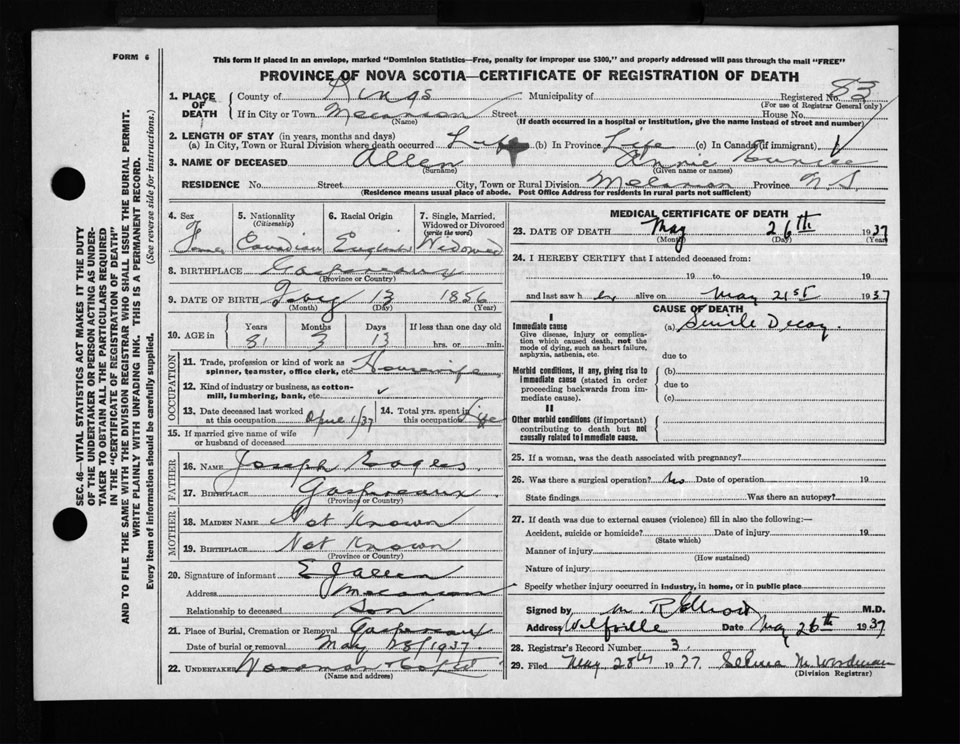 FORM 6
This form if placed in an envelope, marked "Dominion Statistics—Free, penalty for improper use $300," and properly addressed will pass through the mail "FREE"
PROVINCE OF NOVA SCOTIA—CERTIFICATE OF REGISTRATION OF DEATH
1. PLACE OF DEATH
County of Kings Municipality of Registered No. 83
(For use of Registrar General only)
If in City or Town Melanson Street House No.
(Name) (If death occurred in a hospital or institution, give the name instead of street and number)
2. LENGTH OF STAY (in years, months and days)
(a) In City, Town or Rural Division where death occurred Life (b) In Province Life (c) In Canada (if immigrant)
3. NAME OF DECEASED Allen Annie Eunice
(Surname) (Given name or names)
RESIDENCE No. Street City, Town or Rural Division Melanson Province N.S.
(Residence means usual place of abode. Post Office Address for residents in rural parts not sufficient)
4. Sex 5. Nationality (Citizenship) 6. Racial Origin 7. Single, Married, Widowed or Divorced (write the word)
Canadian English Widowed
8. BIRTHPLACE Gaspereaux
(Province or Country)
9. DATE OF BIRTH 13 1856
(Month) (Day) (Year)
10. AGE in Years Months Days If less than one day old
81 3 13 hrs. or min.
OCCUPATION
11. Trade, profession or kind of work as spinner, teamster, office clerk, etc. Housewife
12. Kind of industry or business, as cotton-mill, lumbering, bank, etc.
13. Date deceased last worked at this occupation April 1/37 14. Total yrs. spent in this occupation Life
15. If married give name of wife or husband of deceased
FATHER
16. NAME Joseph Eagles
17. BIRTHPLACE Gaspereaux
(Province or Country)
MOTHER
18. MAIDEN NAME Not Known
19. BIRTHPLACE Not Known
(Province or Country)
20. Signature of informant E J Allen
Address Melanson
Relationship to deceased Son
21. Place of Burial, Cremation or Removal Gaspereaux
Date of burial or removal May 28/1937
22. UNDERTAKER
(Name and address)
MEDICAL CERTIFICATE OF DEATH
23. DATE OF DEATH May 26th 1937
(Month) (Day) (Year)
24. I HEREBY CERTIFY that I attended deceased from:
19 to 19
and last saw her alive on May 21st 1937
CAUSE OF DEATH
I
Immediate cause (a) Senile Decay.
Give disease, injury or complication which caused death, not the mode of dying, such as heart failure, asphyxia, asthenia, etc.
due to
Morbid conditions, if any, giving rise to immediate cause (stated in order proceeding backwards from immediate cause).
(b)
due to
(c)
II
Other morbid conditions (if important) contributing to death but not causally related to immediate cause.
25. If a woman, was the death associated with pregnancy?
26. Was there a surgical operation? No Date of operation 19
State findings Was there an autopsy?
27. If death was due to external causes (violence) fill in also the following:—
Accident, suicide or homicide? Date of injury 19
(State which)
Manner of injury
(How sustained)
Nature of injury
Specify whether injury occurred in industry, in home, or in public place
Signed by M. R. Elliott M.D.
Address Wolfville Date May 26th 1937
28. Registrar's Record Number 3.
29. Filed May 28th 1937 Selma M. Woodman
(Division Registrar)
SEC. 46—VITAL STATISTICS ACT MAKES IT THE DUTY
OF THE UNDERTAKER OR PERSON ACTING AS UNDER-
TAKER TO OBTAIN ALL THE PARTICULARS REQUIRED
IN THE "CERTIFICATE OF REGISTRATION OF DEATH"
AND TO FILE THE SAME WITH THE DIVISION REGISTRAR WHO SHALL ISSUE THE BURIAL PERMIT.
WRITE PLAINLY WITH UNFADING INK. THIS IS A PERMANENT RECORD.
Every item of information should be carefully supplied. (See reverse side for instructions.)